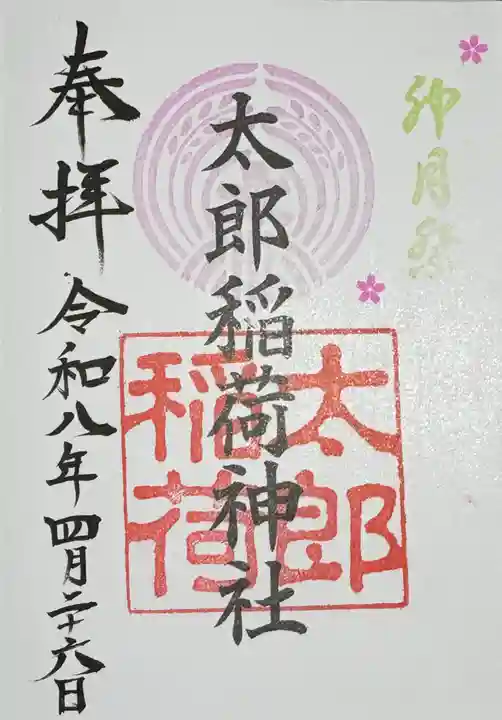 卯月祭
太郎稲荷神社
太郎稲荷
奉拝 令和八年四月二十六日